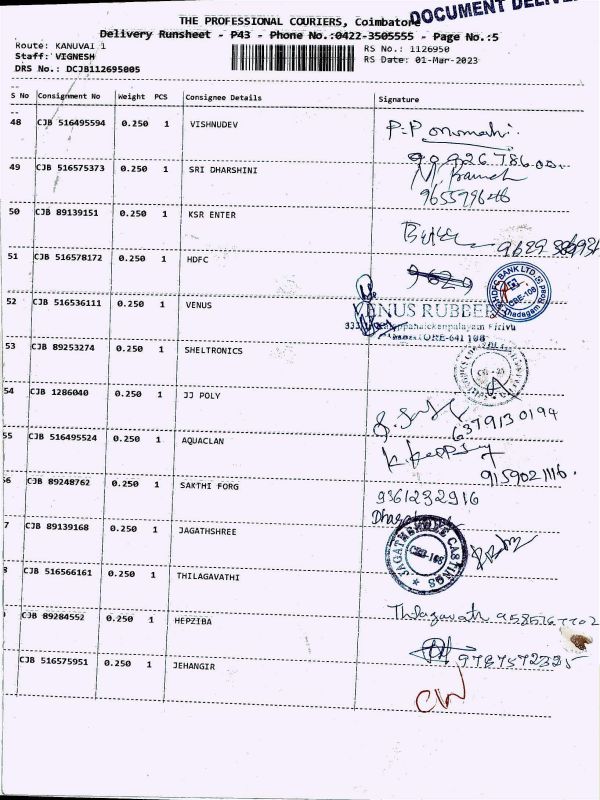 DOCUMENT DELIVE
THE PROFESSIONAL COURIERS, Coimbatore
Delivery Runsheet - P43 - Phone No.:0422-3505555 - Page No.:5
Route: KANUVAI 1 RS No.: 1126950
Staff: VIGNESH RS Date: 01-Mar-2023
DRS No.: DCJB112695005
S No Consignment No Weight PCS Consignee Details Signature
48 CJB 516495594 0.250 1 VISHNUDEV
49 CJB 516575373 0.250 1 SRI DHARSHINI
50 CJB 89139151 0.250 1 KSR ENTER
51 CJB 516578172 0.250 1 HDFC
HDFC BANK LTD.
CBE-108
Thadagam Road
52 CJB 516536111 0.250 1 VENUS
VENUS RUBBER
53 CJB 89253274 0.250 1 SHELTRONICS
54 CJB 1286040 0.250 1 JJ POLY
6379130194
55 CJB 516495524 0.250 1 AQUACLAN
9159021116.
56 CJB 89248762 0.250 1 SAKTHI FORG 9361232916
7 CJB 89139168 0.250 1 JAGATHSHREE
JAGATHSHREE CASTINGS
CBE-108
CJB 516566161 0.250 1 THILAGAVATHI
Thilagavath
CJB 89284552 0.250 1 HEPZIBA
9787572325
CJB 516575951 0.250 1 JEHANGIR